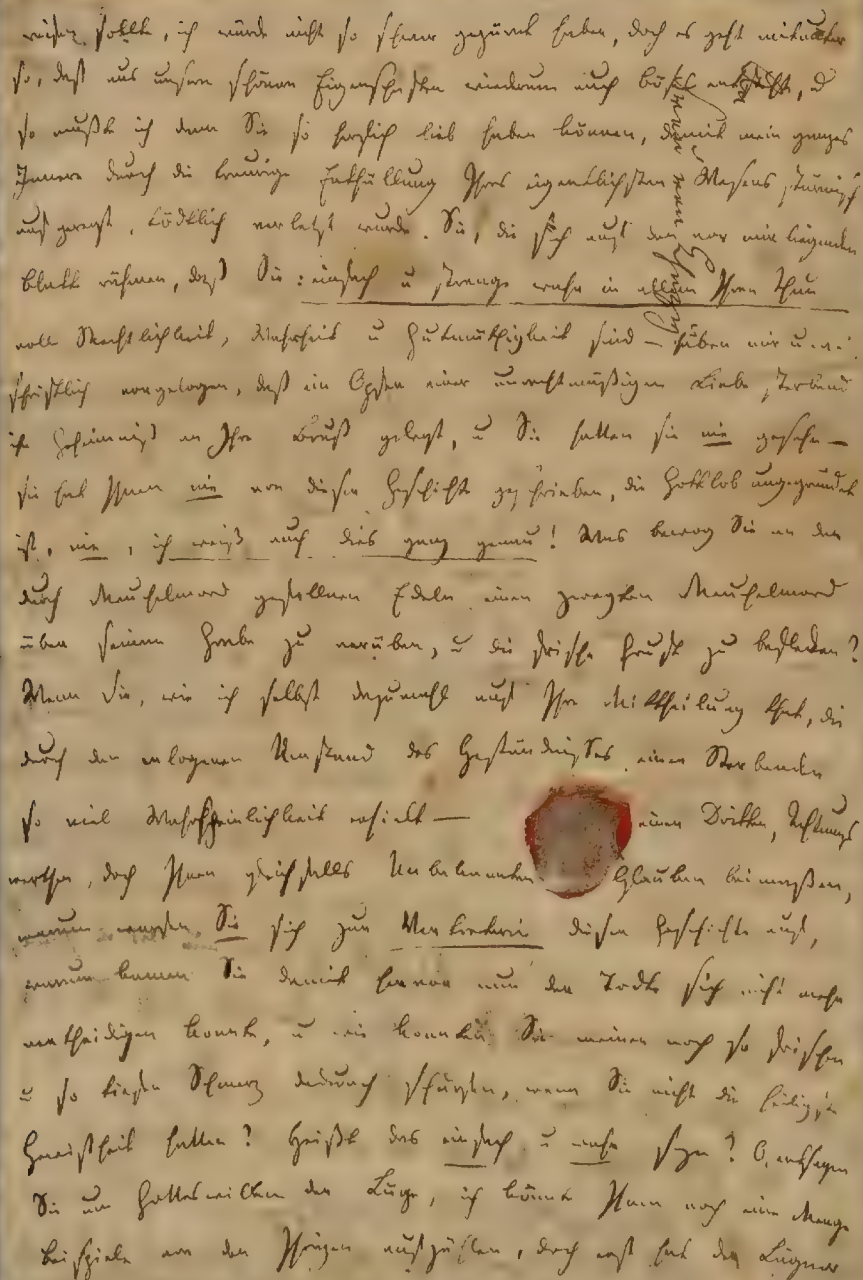 sollte, ich würde nicht so schwer gezürnt haben, doch es geht mitunter
so, daß aus unsern schönen Eigenschaften wiederum auch böse entsteht, u
so mußte ich denn Sie so herzlich lieb haben können, damit mein ganzes
Innere durch die traurige Enthüllung Ihres eigentlichsten Wesens stürmisch
aufgeregt, tödtlich verletzt wurde. Sie, die sich auf dem vor mir liegenden
Blatte rühmen, daß Sie: einfach u strenge wahr in allem Ihren Thun
voll Rechtlichkeit, Wahrheit u Gutmüthigkeit sind – haben mir
schriftlich vorgelogen, daß ein Opfer einer unrechtmäßigen Liebe sterbend
ihr Geheimniß an Ihre Brust gelegt, u Sie hatten sie nie gesehn –
sie hat Ihnen nie von dieser Geschichte geschrieben, die Gottlob ungegründet
ist, nie, ich weiß auch dies ganz genau! Was bewog Sie an den
durch Meuchelmord gefallnen Edeln einen zweyten Meuchelmord
über seinem Grabe zu verüben, u die frische Gruft zu beflecken?
Wenn Sie, wie ich selbst dazumahl auf Ihre Mittheilung that, die
durch den erlogenen Umstand des Geständnißes einer Sterbenden
so viel Wahrscheinlichkeit erhielt – einem Dritten, Achtungs
werthen, doch Ihnen gleichfalls Unbekannten Glauben beimaßen,
warum warfen Sie sich zur Verbreiterin dieser Geschichte auf,
warum kamen Sie damit hervor nun der Todte sich nicht mehr
vertheidigen konnte, u wie konnten Sie meinen noch so frischen
u so tiefen Schmerz dadurch schärfen, wenn Sie nicht die heiligste
Gewißheit hatten? Heißt das einfach u wahr seyn? O, entsagen
Sie um Gotteswillen der Lüge, ich könnte Ihnen noch eine Menge
Beispiele von den Ihrigen aufzählen, doch erst hat der Lügner